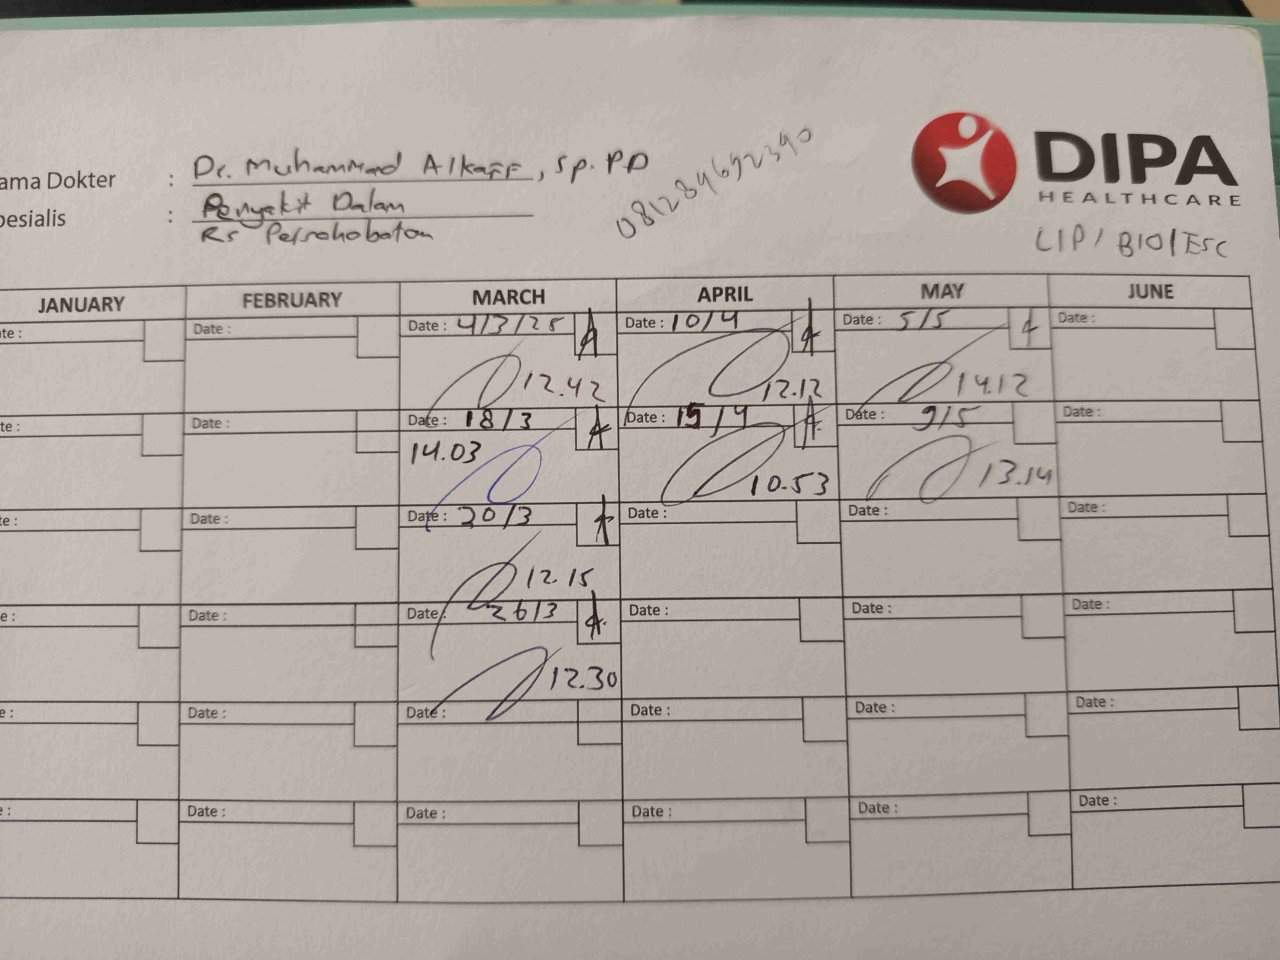 DIPA
HEALTHCARE
LIP/BIO/ESC
ama Dokter : Dr. Muhammad Alkaff, Sp.PD
esialis : Penyakit Dalam
Rs Persahabatan
081284692390
JANUARY FEBRUARY MARCH APRIL MAY JUNE
te: Date : Date : 4/3/25 Date : 10/4 Date : 5/5 Date :
12.42 12.12 14.12
te: Date : Date : 18/3 Date : 15/4 Date : 9/5 Date :
14.03 10.53 13.14
te: Date : Date : 20/3 Date : Date : Date :
12.15
e: Date : Date : 26/3 Date : Date : Date :
12.30
e: Date : Date : Date : Date : Date :
: Date : Date : Date : Date : Date :